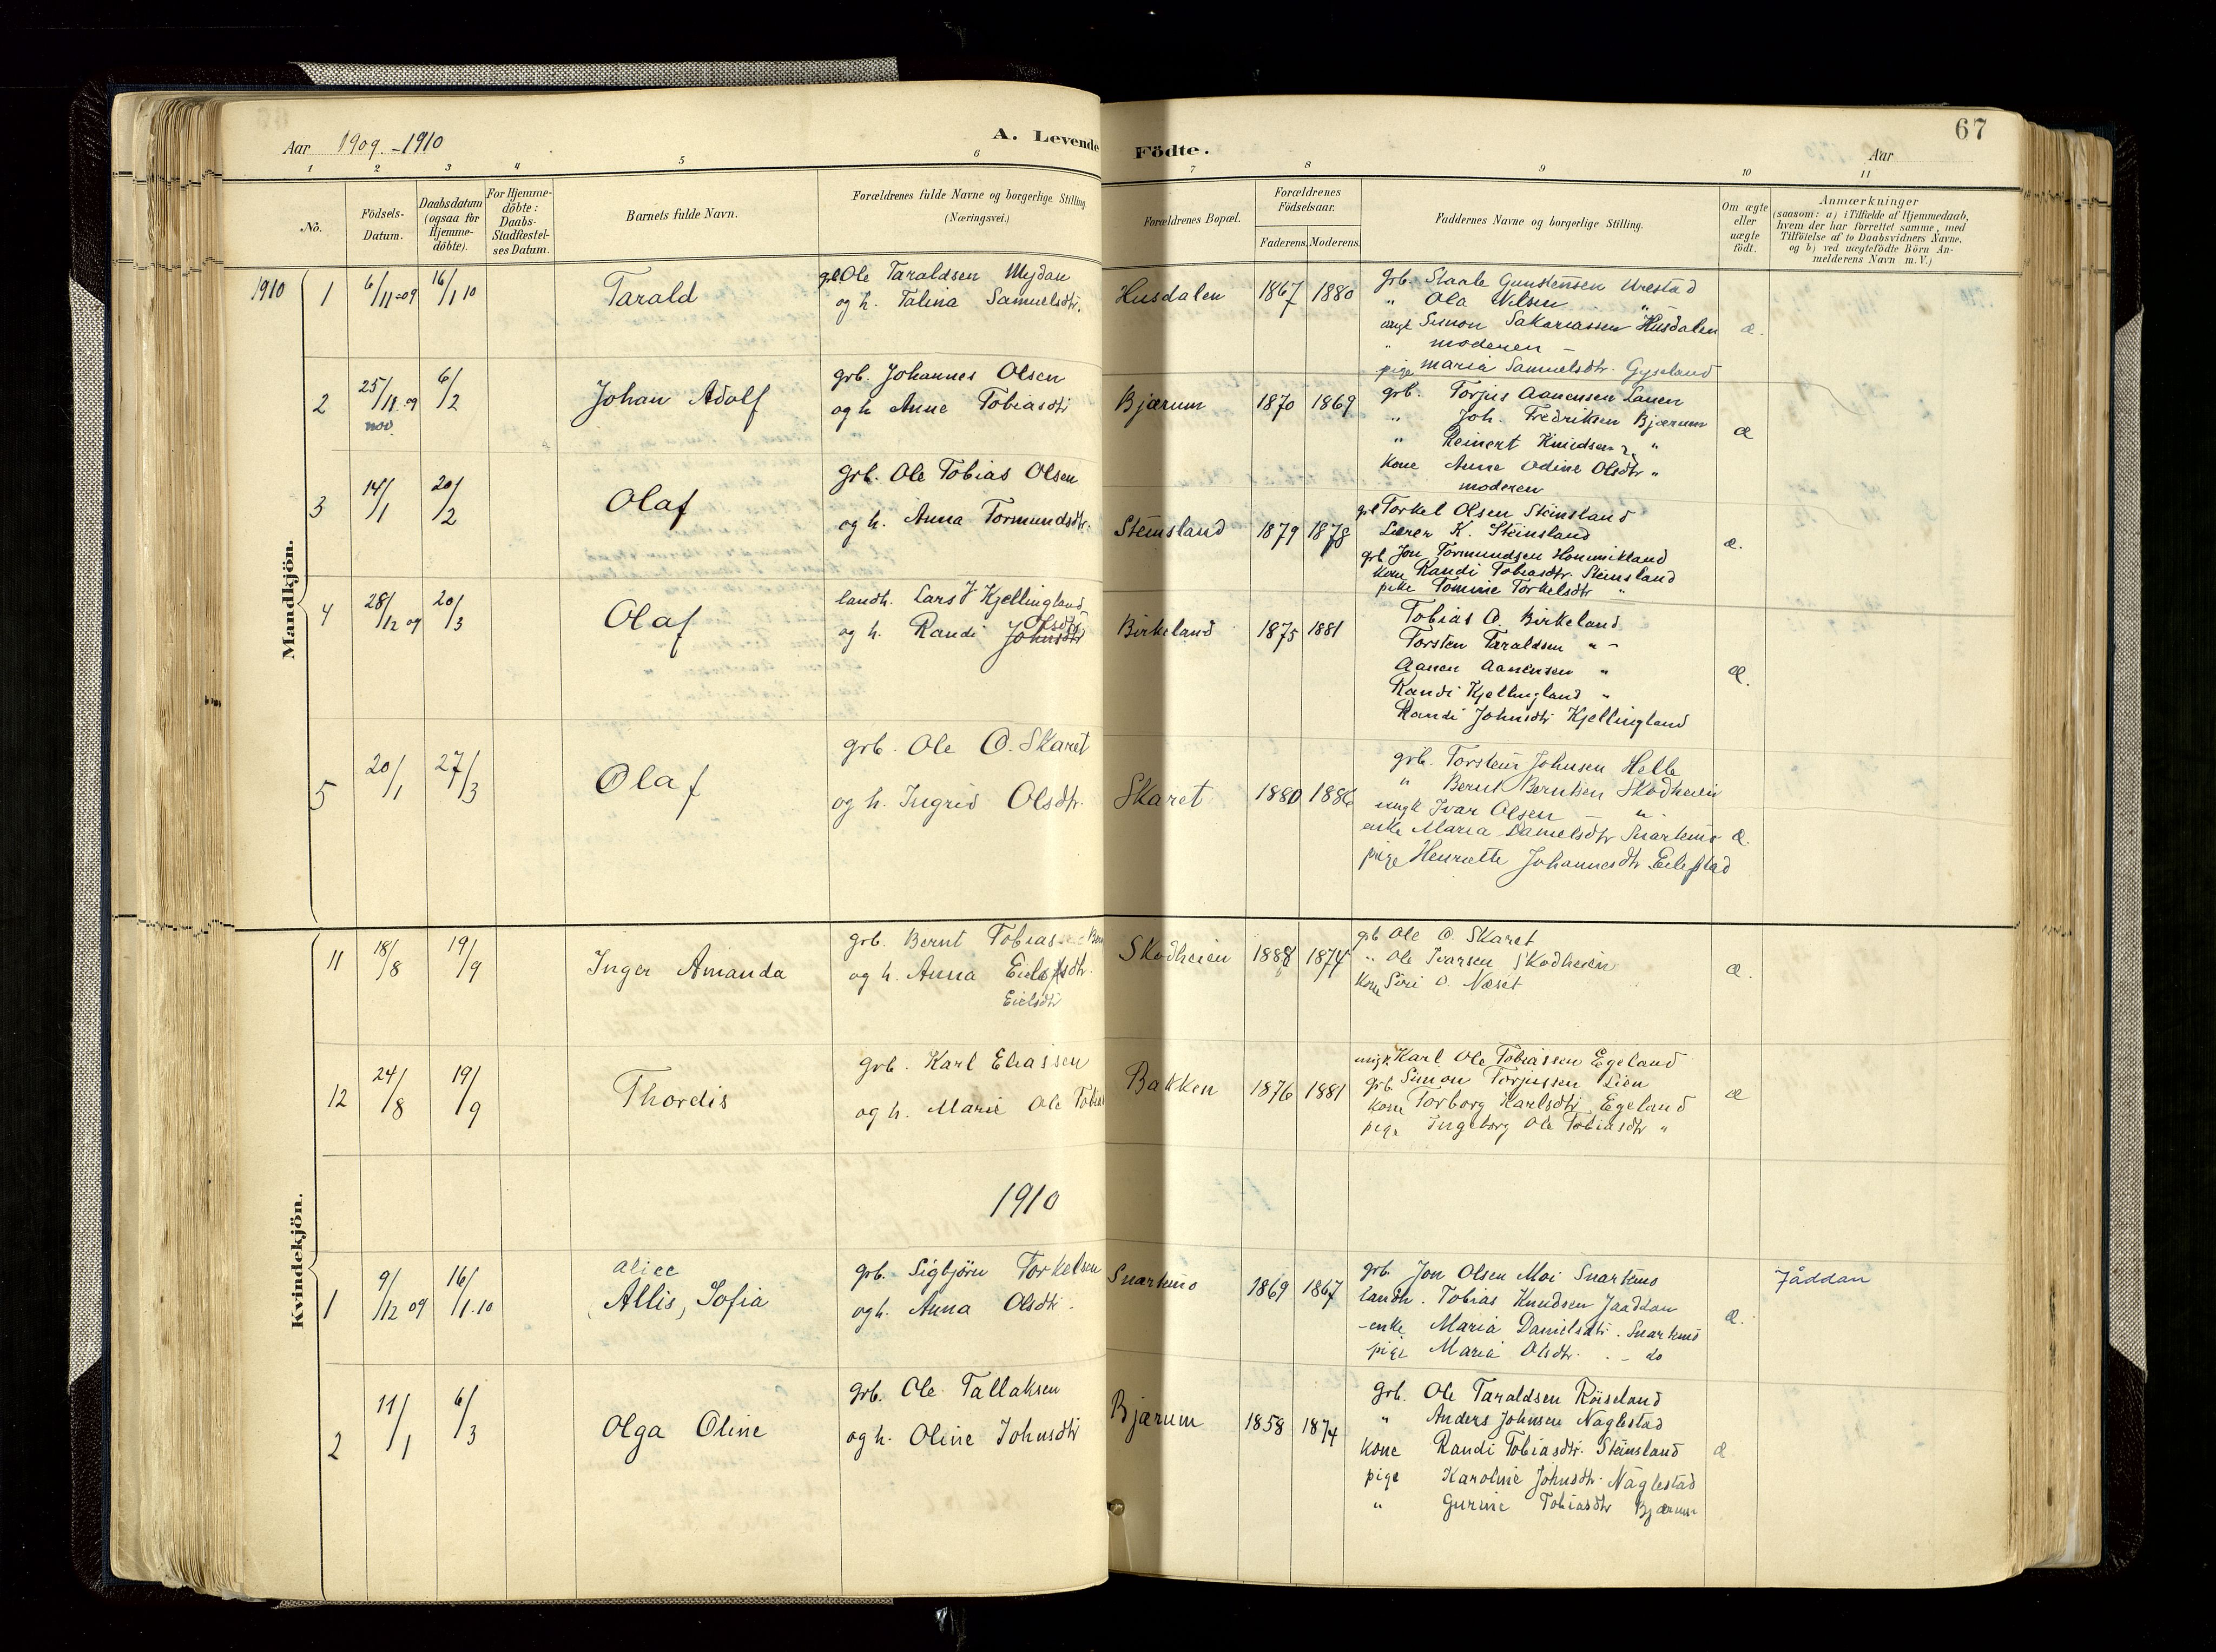 67
Aar 1909.-1910
A. Levende Födte.
Aar
1 2 3 4 5 6 7 8 9 10 11
No.
Födsels-Datum.
Daabsdatum (ogsaa for Hjemme-döbte).
For Hjemme-döbte: Daabs-Stadfestel-ses Datum.
Barnets fulde Navn.
Forældrenes fulde Navne og borgerlige Stilling (Næringsvei.)
Forældrenes Bopæl.
Forældrenes Födselsaar.
Faderens. Moderens.
Faddernes Navne og borgerlige Stilling.
Om ægte eller uægte födt.
Anmærkninger
(saasom: a) i Tilfælde af Hjemmedaab,
hvem der har forrettet samme, med
Tilföielse af to Daabsvidners Navne,
og b) ved uægtefödte Börn An-
melderens Navn m. V.)
Mandkjön.
1910 1 6/11-09 16/1 10 Tarald
Ole Taraldsen
og h. Talina Samuelsdtr.
Husdalen 1867 1880
grb. Staale Gunstensen Urestad
" Ola Nilsen "
ungk Simon Sakariassen Husdalen æ.
" moderen –
pige Maria Samuelsdtr. Gyseland
2 25/11-09 6/2 Johan Adolf
nov.
grb. Johannes Olsen
og h Anne Tobiasdtr
Bjærum 1870 1869
grb. Torjus Aanensen Lauen
" Joh. Fredriksen Bjærum æ
" Reinert Knudsen "
Kone Anne Odine Olsdtr "
moderen
3 14/1 20/2 Olaf
grb. Ole Tobias Olsen
og h. Anna Tormundsdtr.
Steinsland 1879 1878
Torkel Olsen Steinsland
Lærer K. Steinsland æ.
grb Jon Tormundsen
kone Randi Tobiasdtr. Steinsland
pike Tomine Torkelsdtr "
4 28/12 09 20/3 Olaf
landh. Lars J Kjellingland
Olsdtr
og h. Randi Johnsdtr
Birkeland 1875 1881
Tobias O. Birkeland
Torsten Taraldsen " –
Aanen Aanensen " æ.
Randi Kjellingland "
Randi Johnsdtr Kjellingland
5 20/1 27/3 Olaf
grb. Ole O. Skaret
og h. Ingrid Olsdtr.
Skaret 1880 1886
grb. Torstein Johnsen Helle
" Bernt Berntsen Skodheien
ungk Ivar Olsen – " –
enke Maria Danielsdtr Snartemo æ.
pige Henriette Johannesdtr Eilefstad
Kvindekjön.
11 18/8 19/9 Inger Amanda
grb. Bernt
og h. Anna
Eielsdtr
Skodheien 1888 1874
grb Ole O. Skaret
" Ole Ivarsen Skodheien æ.
Kone Siri O. Næset
12 24/8 19/9 Thordis
grb. Karl Eliassen
og h. Marie Ole
Bakken 1876 1881
ungk. Karl Ole Tobiassen Egeland
grb. Simon Torjussen Lien æ
kone Torborg Karlsdtr Egeland
pige Ingeborg Ole Tobiasdtr "
1910
1 9/12 09 16/1.10
Alice
(Allis) Sofia
grb. Sigbjörn Torkelsen
og h. Anna Olsdtr.
Snartemo 1869 1867
grb. Jon Olsen Moi Snartemo Jåddan
landh. Tobias Knudsen Jaaddan æ.
-enke Maria Danielsdtr. Snartemo
pige Maria Olsdtr. . – do
2 11/1 6/3 Olga Oline
grb. Ole Tallaksen
og h. Oline Johnsdtr
Bjærum 1858 1874
grb. Ole Taraldsen Röiseland
" Anders Johnsen Naglestad
kone Randi Tobiasdtr. Steinsland æ
pige Karoline Johnsdtr. Naglestad
" Gurine Tobiasdtr Bjærum